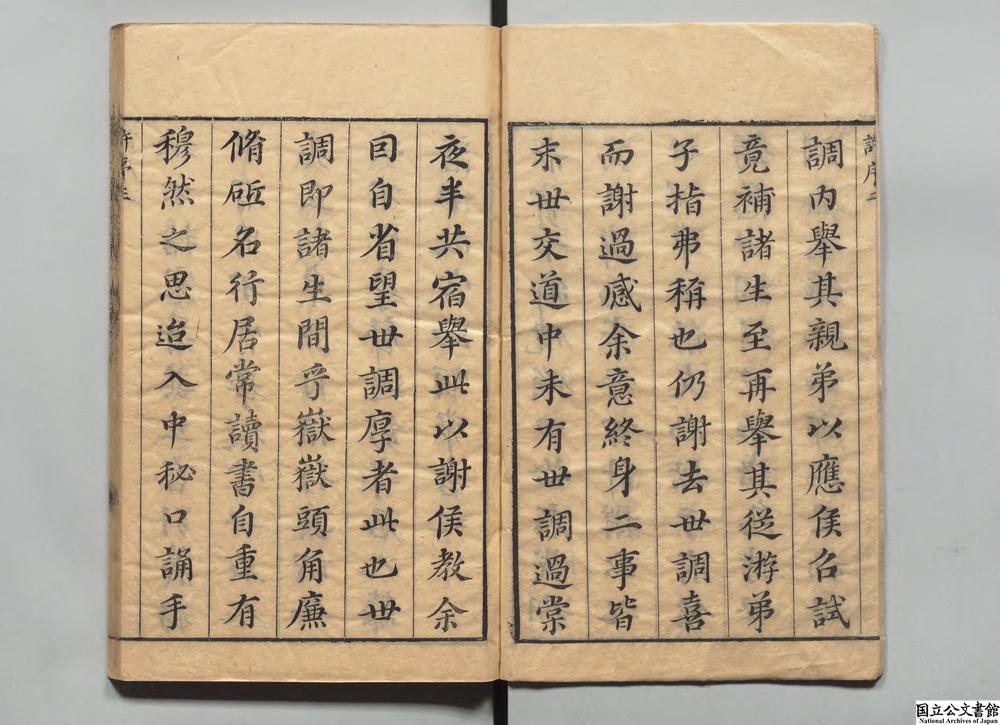 調内舉其親弟以應侯召試
竟補諸生至再舉其從游弟
子指弗稱也仍謝去世調喜
而謝過感余意終身二事皆
末世交道中未有世調過棠
夜半共宿舉此以謝侯教余
囙自省望世調厚者此也世
調即諸生間乎嶽嶽頭角廉
脩砥名行居常讀書自重有
穆然之思迨入中秘口誦手
国立公文書館
National Archives of Japan